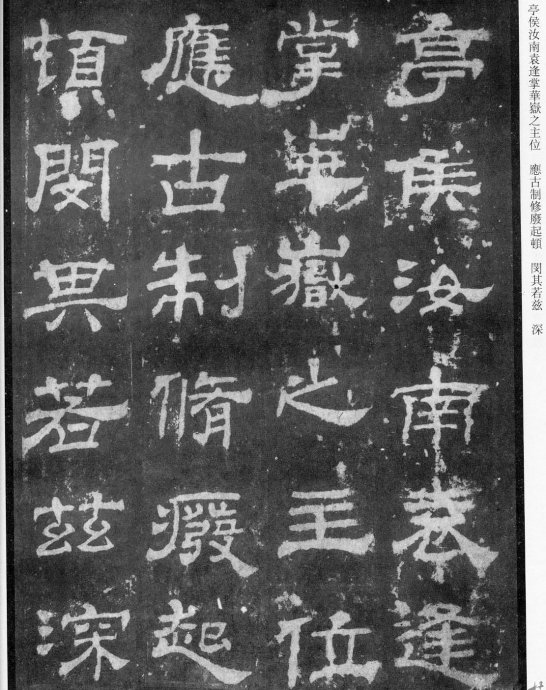 亭侯汝南袁逢
掌華嶽之主位
應古制修廢起
頓閔其若茲深
亭侯汝南袁逢掌華嶽之主位 應古制修廢起頓 閔其若茲 深